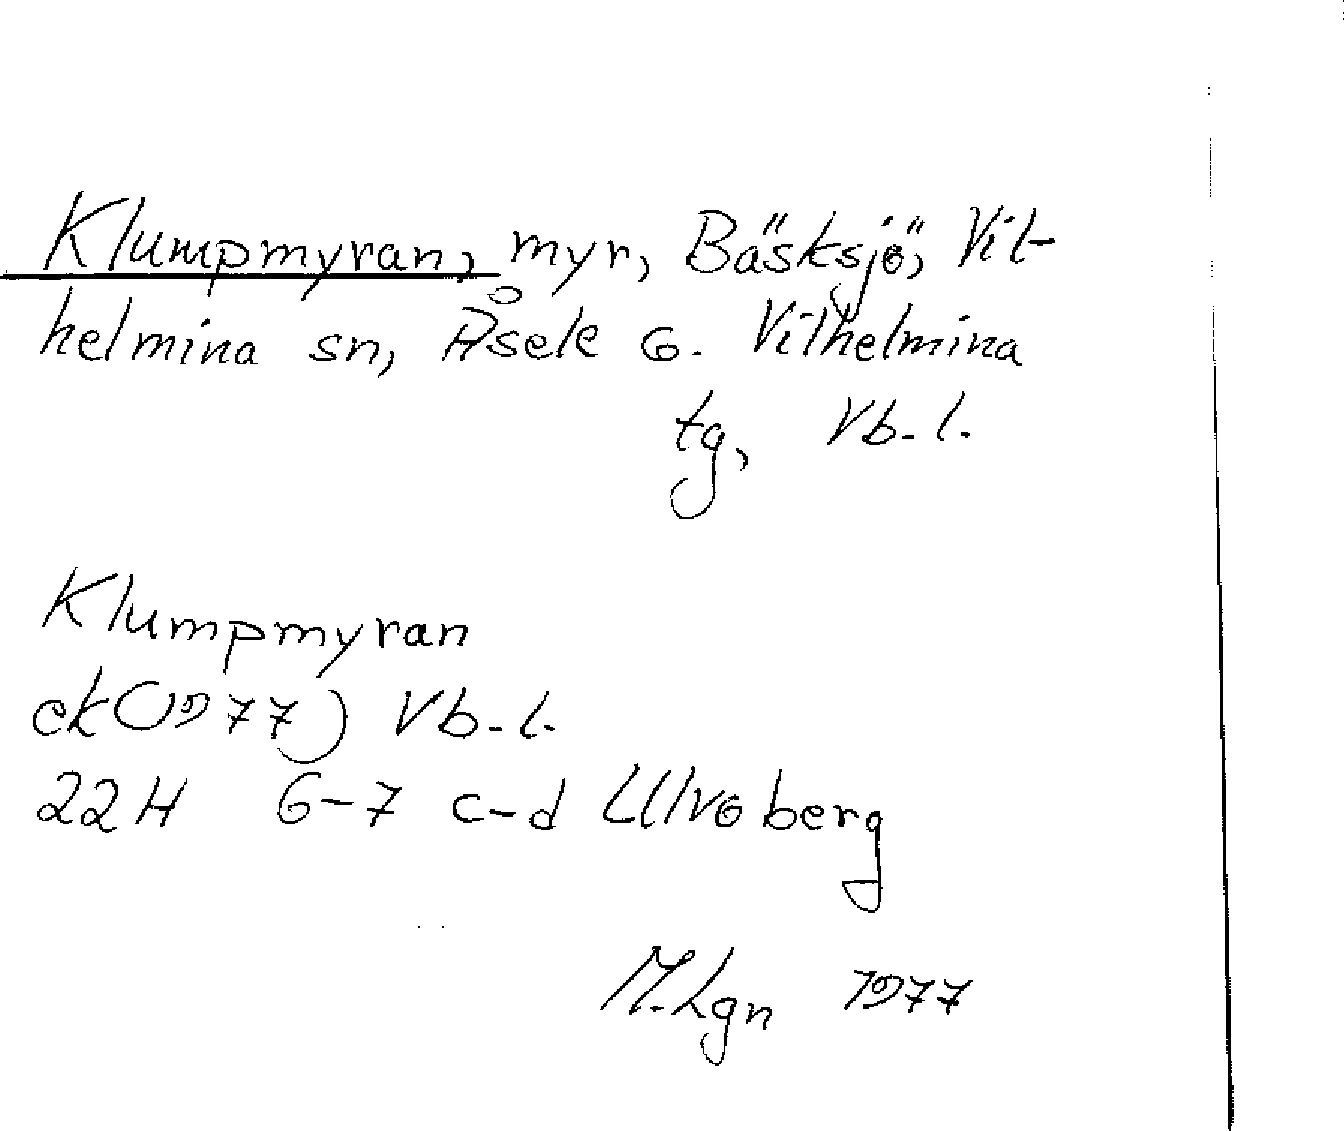 Klumpmyran, myr, Bäsksjö, Vil-
helmina sn, Åsele G. Vilhelmina
tg, Vb. l.
Klumpmyran
ek (1977) Vb. l.
22H 6-7 c-d Ulvoberg
M.Lgn 1977